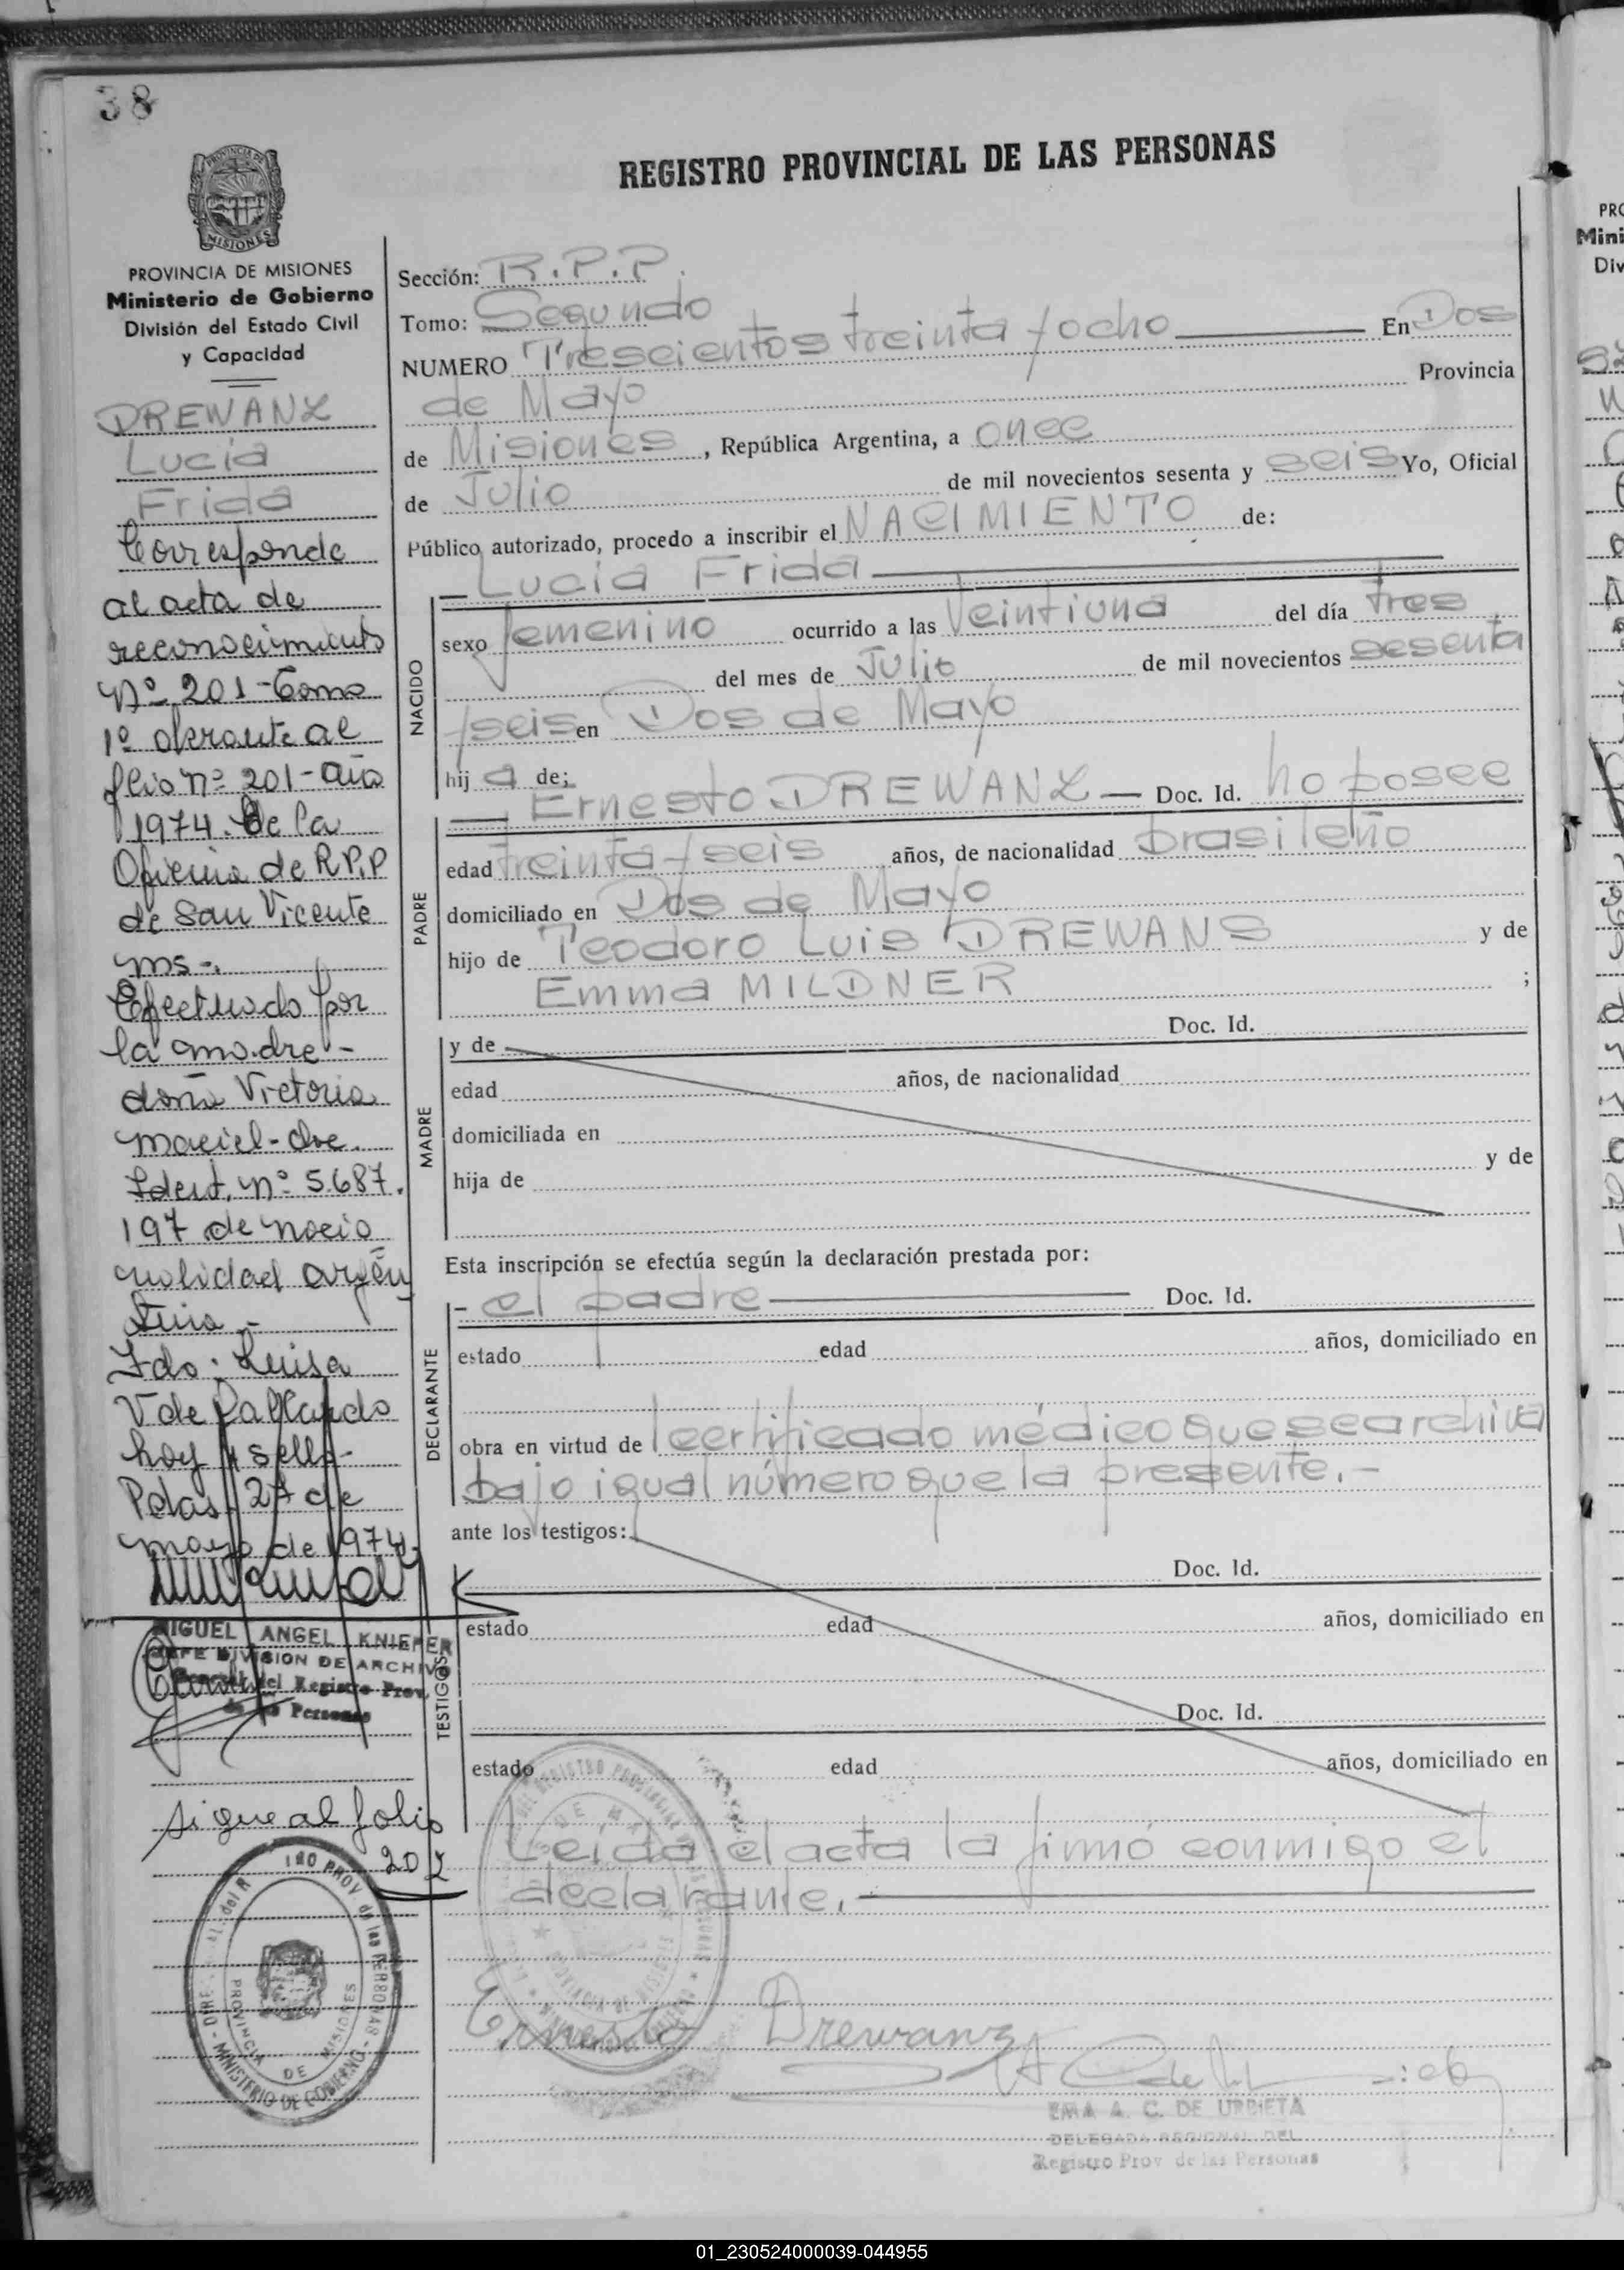 38
REGISTRO PROVINCIAL DE LAS PERSONAS
PROVINCIA DE MISIONES
Ministerio de Gobierno
División del Estado Civil
y Capacidad
DREWANZ
Lucia
Frida
Corresponde
al acta de
reconocimiento
Nº 201 - Tomo
1º obrante al
folio nº 201 - año
1974. De la
Oficina de R.P.P
de San Vicente
Ms -.
Efectuado por
la madre -
doña Victoria
Maciel - doc.
Ident. nº 5.687.
197 de nacio
nalidad argen
tina -
Fdo: Luisa
V de Gallardo
hay 1 sello -
Pdas. 27 de
mayo de 1974.
MIGUEL ANGEL KNIEPER
JEFE DIVISION DE ARCHIVOS
General del Registro Prov.
de las Personas
sigue al folio
202
PROVINCIA DE MISIONES
MINISTERIO DE GOBIERNO
Sección: R.P.P.
Tomo: Segundo
NUMERO Trescientos treinta y ocho En Dos
de Mayo Provincia
de Misiones, República Argentina, a once
de Julio de mil novecientos sesenta y seis Yo, Oficial
Público autorizado, procedo a inscribir el NACIMIENTO de:
Lucia Frida
NACIDO
sexo femenino ocurrido a las veintiuna del día tres
del mes de Julio de mil novecientos sesenta
y seis en Dos de Mayo
hij a de;
Ernesto DREWANZ — Doc. Id. no posee
PADRE
edad treinta y seis años, de nacionalidad brasileño
domiciliado en Dos de Mayo
hijo de Teodoro Luis DREWANS y de
Emma MILDNER ;
MADRE
y de Doc. Id.
edad años, de nacionalidad
domiciliada en
hija de y de
Esta inscripción se efectúa según la declaración prestada por:
DECLARANTE
- el padre Doc. Id.
estado edad años, domiciliado en
obra en virtud de certificado médico que se archiva
bajo igual número que la presente.-
ante los testigos:
TESTIGOS
Doc. Id.
estado edad años, domiciliado en
Doc. Id.
estado edad años, domiciliado en
Leída el acta la firmó conmigo el
declarante.
Ernesto Drewanz
EMA A. C. DE URRIETA
DELEGADA REGIONAL DEL
Registro Prov de las Personas
PRO
Mini
Div
01_230524000039-044955